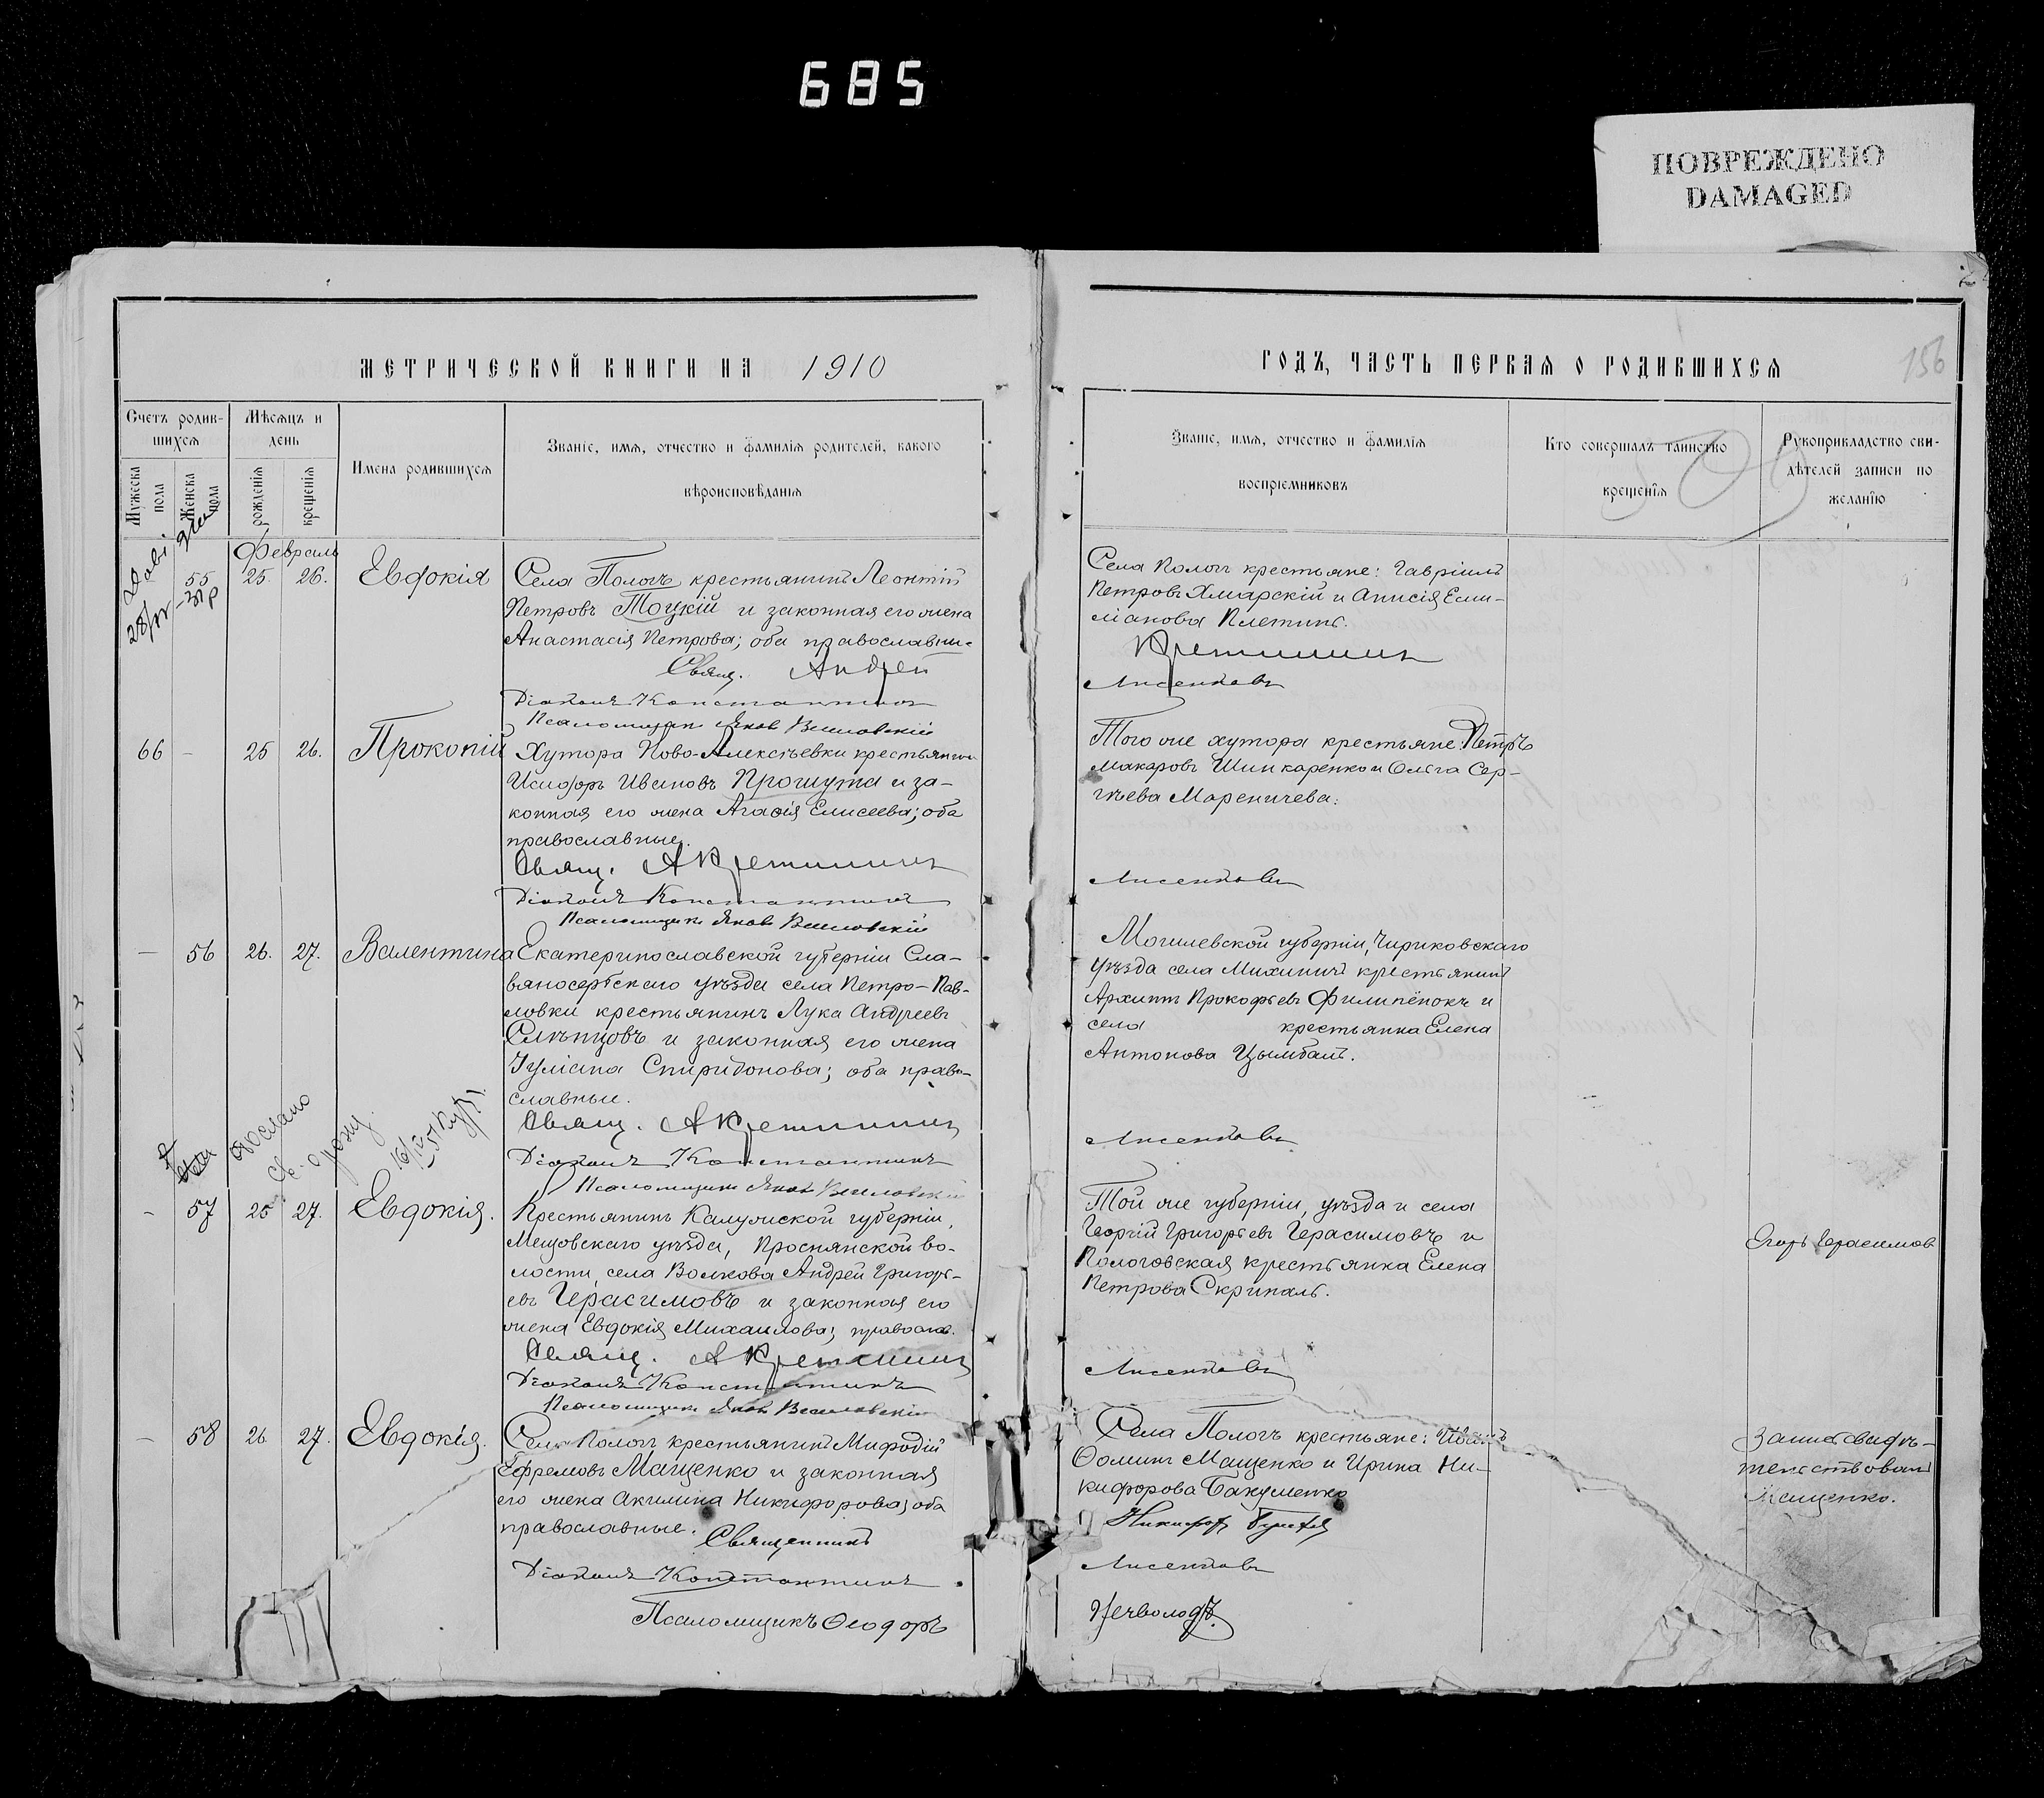 685
ПОВРЕЖДЕНО
DAMAGED
МЕТРИЧЕСКОЙ КНИГИ НА 1910
ГОДЪ, ЧАСТЬ ПЕРВАЯ О РОДИВШИХСЯ
156
Счетъ родив-
шихся
Мѣсяцъ и
день
Мужеска
пола
Женска
пола
рожденія
крещенія
Имена родившихся
Званіе, имя, отчество и фамилія родителей, какого
вѣроисповѣданія
Званіе, имя, отчество и фамилія
воспріемниковъ
Кто совершалъ таинство
крещенія
Рукоприкладство сви-
дѣтелей записи по
желанію
Февраль
55 25. 26. Евдокія
Села Пологъ крестьянинъ Леонтій
Петровъ Тоцкій и законная его жена
Анастасія Петрова; оба православные
Свящ. Андрей
Діаконъ Константинъ
Псаломщикъ Яковъ
Села Пологъ крестьяне: Гавріилъ
Петровъ Хмарскій и Анисія Еми-
ліанова Плетинь.
Лисенковъ
66 - 25 26. Прокопій
Хутора Ново-Алексѣевки крестьянинъ
Ивановъ Прошута и за-
конная его жена Агафія Елисеева; оба
православные.
Свящ. А
Діаконъ Константинъ
Псаломщикъ Яковъ
Того же хутора крестьяне: Петръ
Макаровъ Шинкаренко и Ольга Сер-
гѣева Мареничева.
Лисенковъ
- 56 26. 27. Валентина
Екатеринославской губерніи Сла-
вяносербскаго уѣзда села Петро-Пав-
ловки крестьянинъ Лука Андреевъ
Слѣпцовъ и законная его жена
Іуліана Спиридонова; оба право-
славные.
Свящ. А
Діаконъ Константинъ
Псаломщикъ Яковъ
Могилевской губерніи, Чириковскаго
уѣзда села Михиничъ крестьянинъ
Архипъ Прокофьевъ Филипёнокъ и
села крестьянка Елена
Антонова Цымбалъ.
Лисенковъ
- 57 25 27. Евдокія.
Крестьянинъ Калужской губерніи,
Мещовскаго уѣзда, во-
лости, села Волкова Андрей Григорь-
евъ Герасимовъ и законная его
жена Евдокія Михаилова; правосла.
Свящ. А
Діаконъ Константинъ
Псаломщикъ Яковъ
Той же губерніи, уѣзда и села
Георгій Григорьевъ Герасимовъ и
Пологовская крестьянка Елена
Петрова Скрипаль.
Лисенковъ
Егоръ Герасимов
- 58 26. 27. Евдокія.
Села Пологъ крестьянинъ Мифодій
Ефремовъ Мащенко и законная
его жена Акилина Никифорова; оба
православные.
Священникъ
Діаконъ Константинъ
Псаломщикъ Ѳеодоръ
Села Пологъ крестьяне: Иванъ
Ѳоминъ Мащенко и Ирина Ни-
кифорова Бакуменко
Лисенковъ
Нечволодъ.
Мащенко.